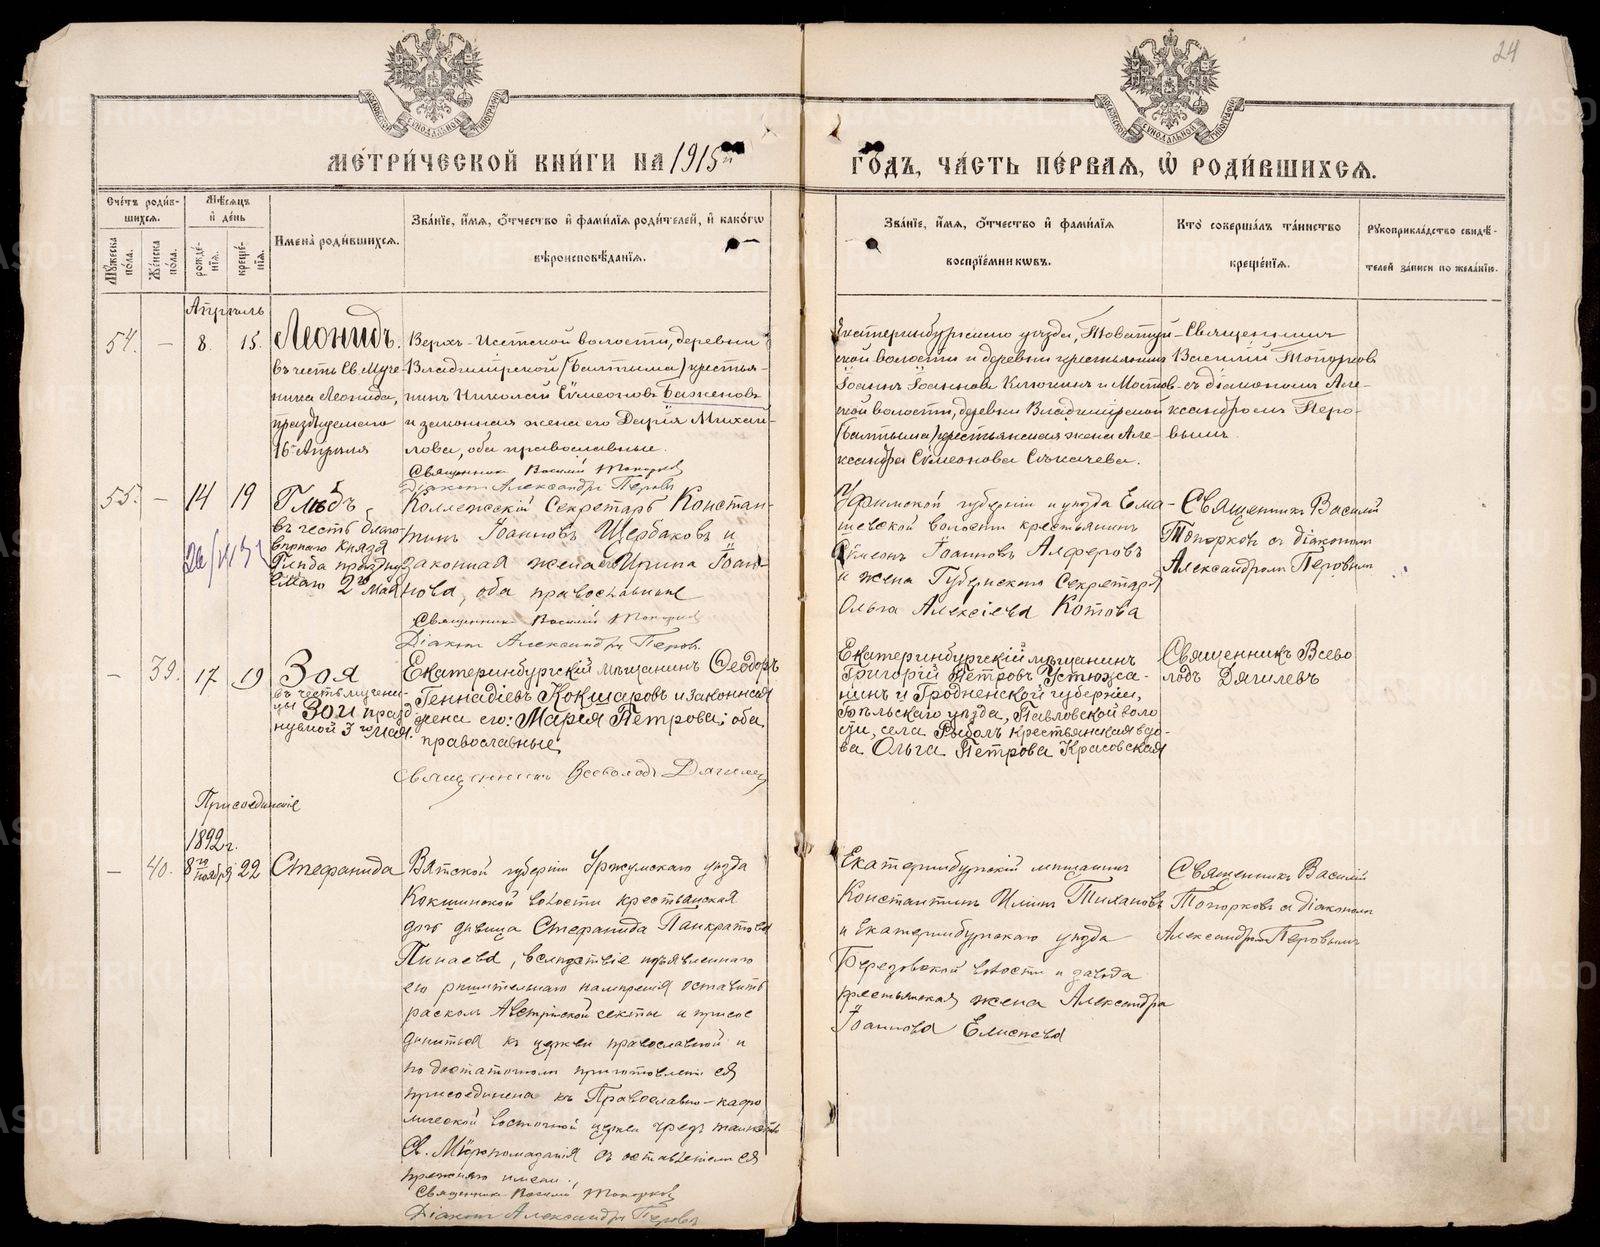 24
МЕТРИ́ЧЕСКОЙ КНИ́ГИ НА 1915й ГО́ДЪ, ЧА́СТЬ ПЕ́РВАЯ, Ѡ҆ РОДИ́ВШИХСЯ.
Сче́тъ роди́в-
шихся.
Мѣ́сяцъ
и҆ де́нь
Мꙋ́жеска по́ла.
Же́нска по́ла.
рожде́-
нїя.
креще́-
нїя.
Имена̀ роди́вшихся.
Зва́нїе, и҆́мя, ѻ҆́тчество и҆ фами́лїя роди́телей, и҆ како́гѡ
вѣроисповѣ́данїя.
Зва́нїе, и҆́мя, ѻ҆́тчество и҆ фами́лїя
воспрїе́мникѡвъ.
Кто̀ соверша́лъ та́инство
креще́нїя.
Рꙋкоприкла́дство свидѣ́-
телей за́писи по жела́нїю.
Апрѣль
54. — 8. 15.
Леонидъ.
въ честь Св Муче-
ника Леонида,
празднуемаго
16 Апрѣля
Верхъ-Исетской волости, деревни
Владимірской (Балтыма) крестья-
нинъ Николай Сѵмеоновъ Баженовъ
и законная жена его Дарія Михай-
лова, оба православные.
Священникъ Василій Топорковъ
Діаконъ Александръ Перовъ
Екатеринбургскаго уѣзда, Товатуй-
ской волости и деревни крестьянинъ
Іоаннъ Іоанновъ Клюкинъ и Мостов-
ской волости, деревни Владимірской
(Балтыма) крестьянская жена Але-
ксандра Сѵмеонова Сѣкачева.
Священникъ
Василій Топорковъ
съ діакономъ Але-
ксандромъ Перо-
вымъ.
55. — 14 19
Глѣбъ
въ честь благо-
вѣрнаго князя
Глѣба праздну
емаго 2го Мая
Коллежскій Секретарь Констан-
тинъ Іоанновъ Щербаковъ и
законная жена Ирина Іоан-
нова, оба православные
Священникъ Василій Топорковъ
Діаконъ Александръ Перовъ.
Уфимской губерніи и уѣзда Ема-
шевской волости крестьянинъ
Сѵмеонъ Іоанновъ Алферовъ
и жена Губернскаго Секретаря
Ольга Алексіева Котова
Священникъ Василій
Топорковъ съ діакономъ
Александромъ Перовымъ
— 39. 17 19
Зоя
въ честь мучени-
цы Зои празд
нуемой 3го мая.
Екатеринбургскій мѣщанинъ Ѳеодоръ
Геннадіевъ Кокшаровъ и законная
жена его: Марія Петрова; оба
православные.
Священникъ Всеволодъ Дягилевъ
Екатеринбургскій мѣщанинъ
Григорій Петровъ Устюжа-
нинъ и Гродненской губерніи,
Бѣльскаго уѣзда, Павловской воло
сти, села Рыболъ крестьянская вдо-
ва Ольга Петрова Красовская
Священникъ Всево
лодъ Дягилевъ
Присоединеніе
1892 г.
— 40. 8го ноября 22
Стефанида
Вятской губерніи Уржумскаго уѣзда
Кокшинской волости крестьянская
дочь дѣвица Стефанида Панкратова
Пинаева, вслѣдствіе изъявленнаго
ею рѣшительнаго намѣренія оставить
расколъ Австрійской секты и присое
диниться къ церкви православной и
по достаточномъ приготовленіи ея
присоединена къ Православно-каѳо
лической восточной церкви чрезъ таинство
Св. Мѵропомазанія съ оставленіемъ ея
прежняго имени.
Священникъ Василій Топорковъ
Діаконъ Александръ Перовъ
Екатеринбургскій мѣщанинъ
Константинъ Илiинъ Тихановъ
и Екатеринбургскаго уѣзда
Березовской волости и завода
крестьянская жена Александра
Іоаннова Елисѣева
Священникъ Василій
Топорковъ съ діакономъ
Александромъ Перовымъ
METRIKI.GASO-URAL.RU